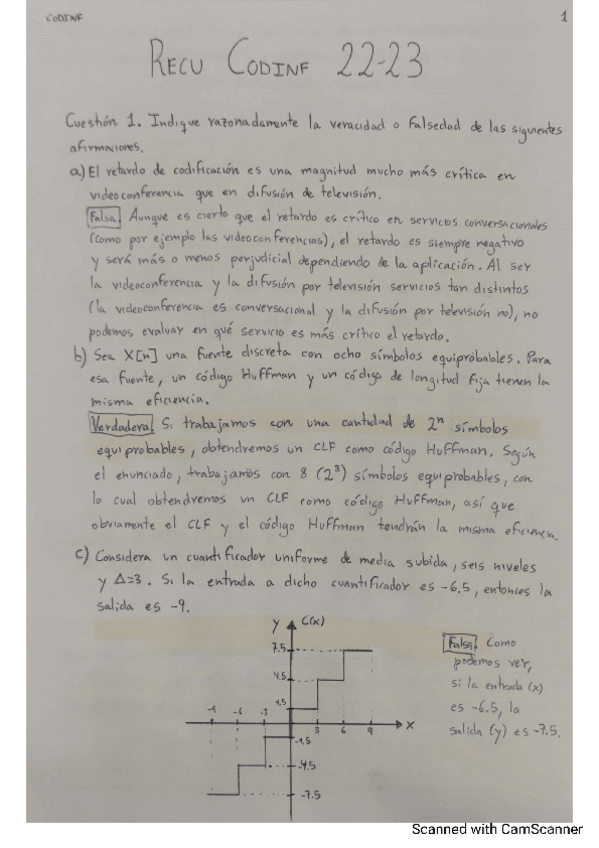 CODINF 1
RECU CODINF 22-23
Cuestión 1. Indique razonadamente la veracidad o falsedad de las siguientes
afirmaciones.
a) El retardo de codificación es una magnitud mucho más crítica en
videoconferencia que en difusión de televisión.
Falsa. Aunque es cierto que el retardo es crítico en servicios conversacionales
(como por ejemplo las videoconferencias), el retardo es siempre negativo
y será más o menos perjudicial dependiendo de la aplicación. Al ser
la videoconferencia y la difusión por televisión servicios tan distintos
(la videoconferencia es conversacional y la difusión por televisión no), no
podemos evaluar en qué servicio es más crítico el retardo.
b) Sea X[n] una fuente discreta con ocho símbolos equiprobables. Para
esa fuente, un código Huffman y un código de longitud fija tienen la
misma eficiencia.
Verdadera. Si trabajamos con una cantidad de 2ⁿ símbolos
equiprobables, obtendremos un CLF como código Huffman. Según
el enunciado, trabajamos con 8 (2³) símbolos equiprobables, con
lo cual obtendremos un CLF como código Huffman, así que
obviamente el CLF y el código Huffman tendrán la misma eficiencia.
c) Considera un cuantificador uniforme de media subida, seis niveles
y Δ=3. Si la entrada a dicho cuantificador es -6.5, entonces la
salida es -9.
y C(x)
7.5
4.5
1.5
-9 -6 -3
3 6 9 x
-1.5
-4.5
-7.5
Falsa. Como
podemos ver,
si la entrada (x)
es -6.5, la
salida (y) es -7.5.
Scanned with CamScanner